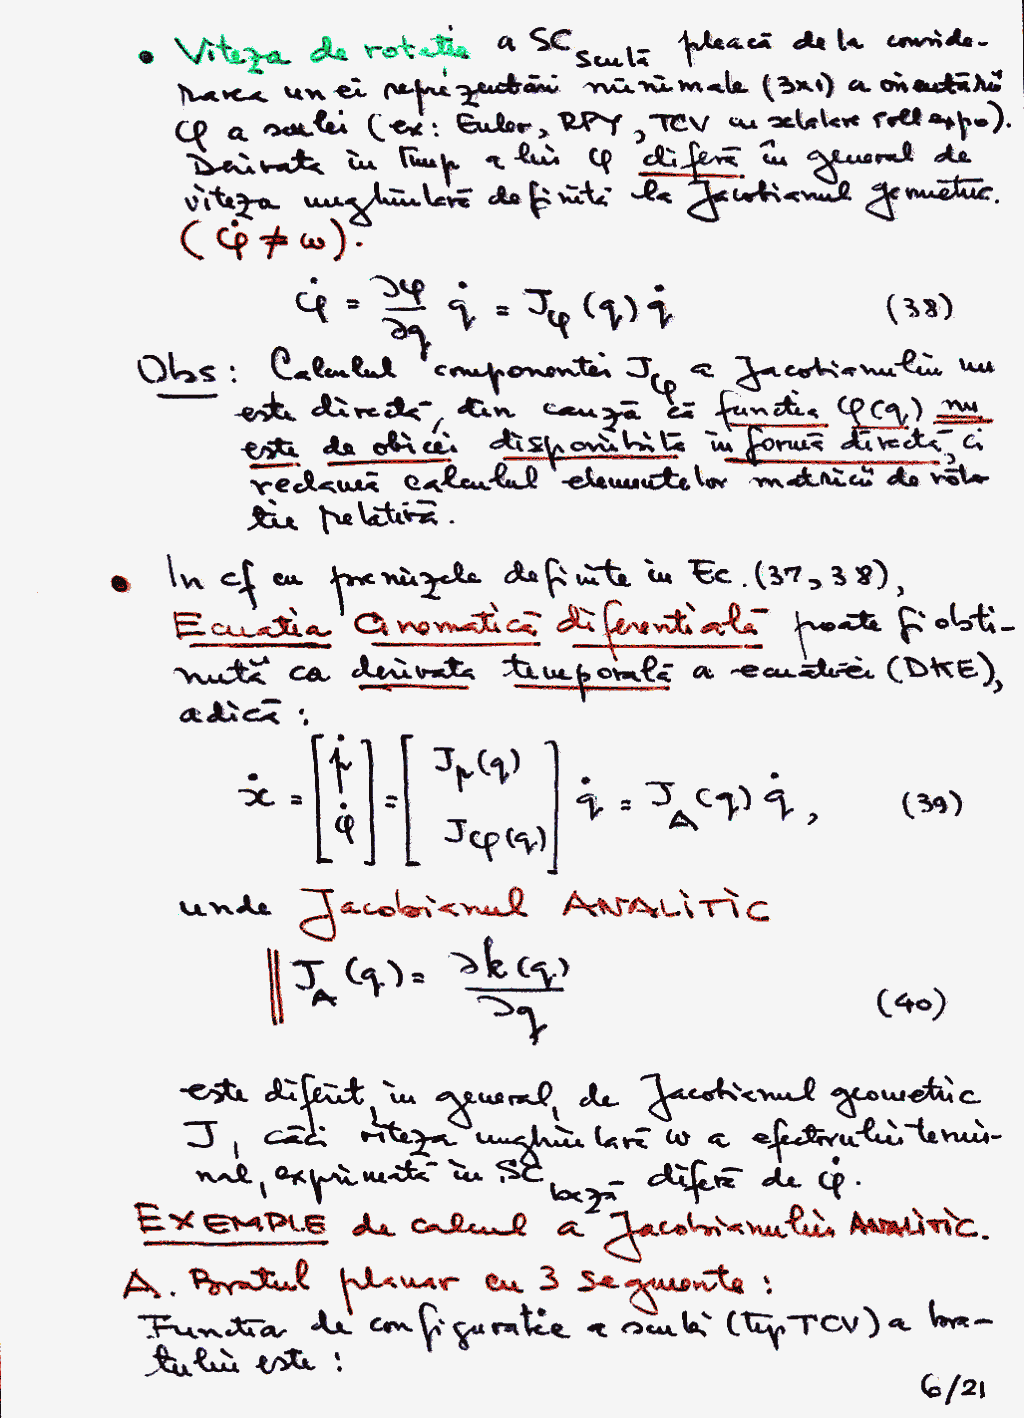 • Viteza de rotatie a SC sculă pleacă de la conside-
rarea unei reprezentări minimale (3x1) a orientării
φ a sculei (ex: Euler, RPY, TCV cu scalare roll expo).
Derivata în timp a lui φ diferă în general de
viteza unghiulară definită la Jacobianul geometric.
(φ̇ ≠ ω).
φ̇ = ∂φ/∂q q̇ = Jφ (q) q̇ (38)
Obs: Calculul componentei Jφ a Jacobianului nu
este directă, din cauză că functia φ(q) nu
este de obicei disponibilă in formă directă, ci
reclamă calculul elementelor matricii de rota
tie relativă.
• In cf cu premizele definite in Ec. (37, 38),
Ecuatia Cinematică diferentială poate fi obti-
nută ca derivata temporală a ecuatiei (DKE),
adică :
ẋ = [ṗ φ̇] = [Jp(q) Jφ(q)] q̇ = J_A(q) q̇, (39)
unde Jacobianul ANALITIC
J_A (q) = ∂k(q)/∂q (40)
este diferit, in general, de Jacobianul geometric
J, căci viteza unghiulară ω a efectorului termi-
nal, exprimată in SC bază diferă de φ̇.
EXEMPLE de calcul a Jacobianului ANALITIC.
A. Bratul planar cu 3 segmente :
Functia de configuratie a sculei (tip TCV) a bra-
tului este :
6/21